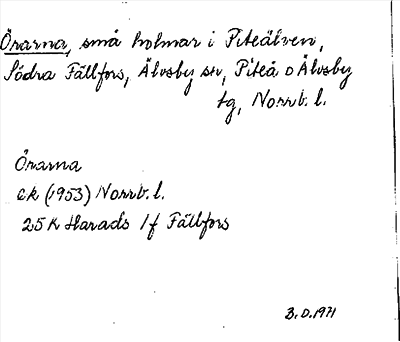 Örarna, små holmar i Piteälven,
Södra Fällfors, Älvsby sn, Piteå o Älvsby
tg, Norrb. l.
Örarna
ek (1953) Norrb. l.
25 K Harads 1f Fällfors
B.O. 1971